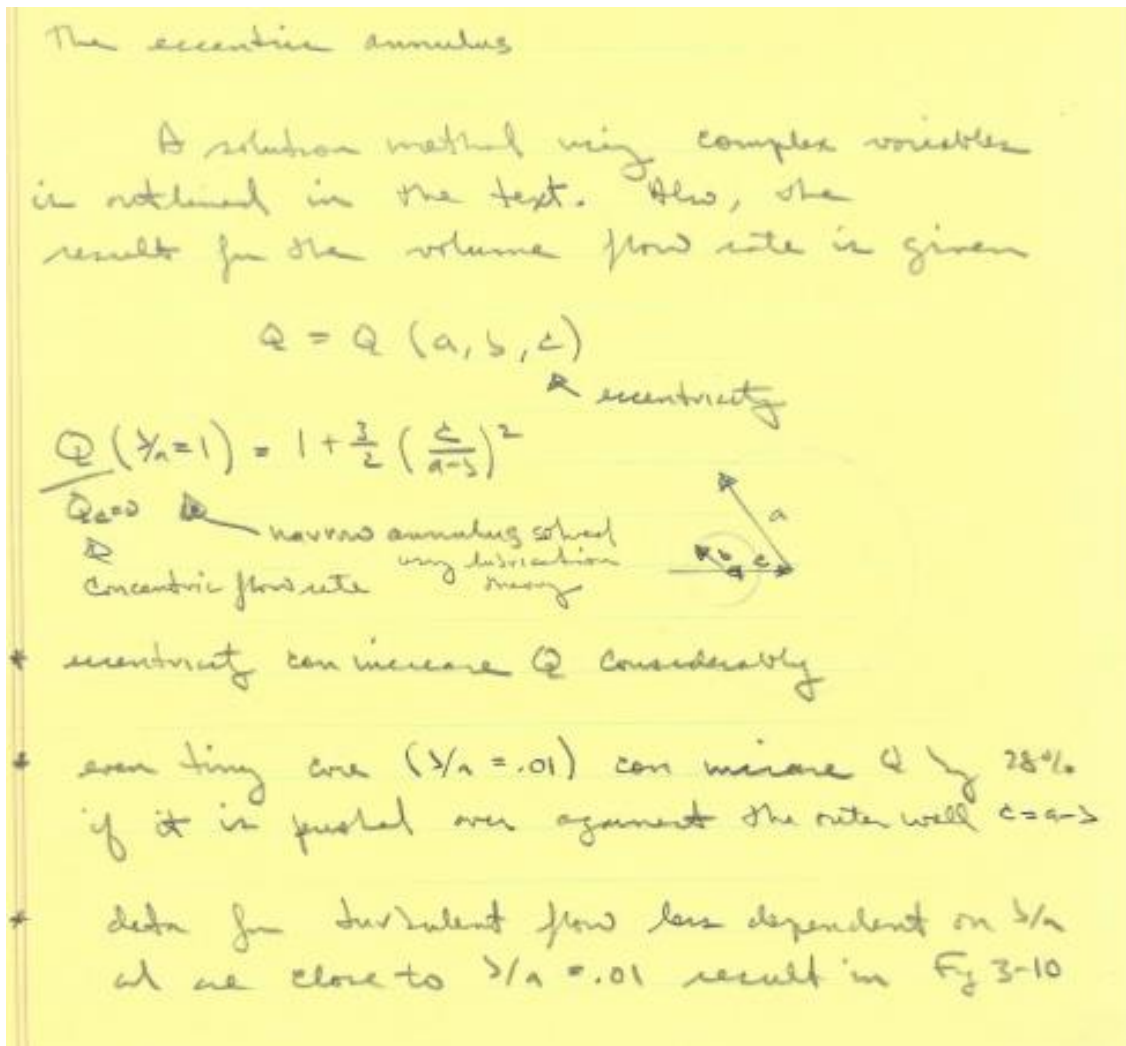 The eccentric annulus
A solution method using complex variables
is outlined in the text. Also, the
results for the volume flow rate is given
Q = Q (a, b, c)
eccentricity
Q/Q_{c=0} (b/a=1) = 1 + 3/2 (c/(a-b))^2
narrow annulus solved
using lubrication
theory
concentric flow rate
a
b
c
* eccentricity can increase Q considerably
* even tiny core (b/a = .01) can increase Q by 28%
if it is pushed over against the outer wall c=a-b
* data for turbulent flow less dependent on b/a
at are close to b/a = .01 result in Fig 3-10